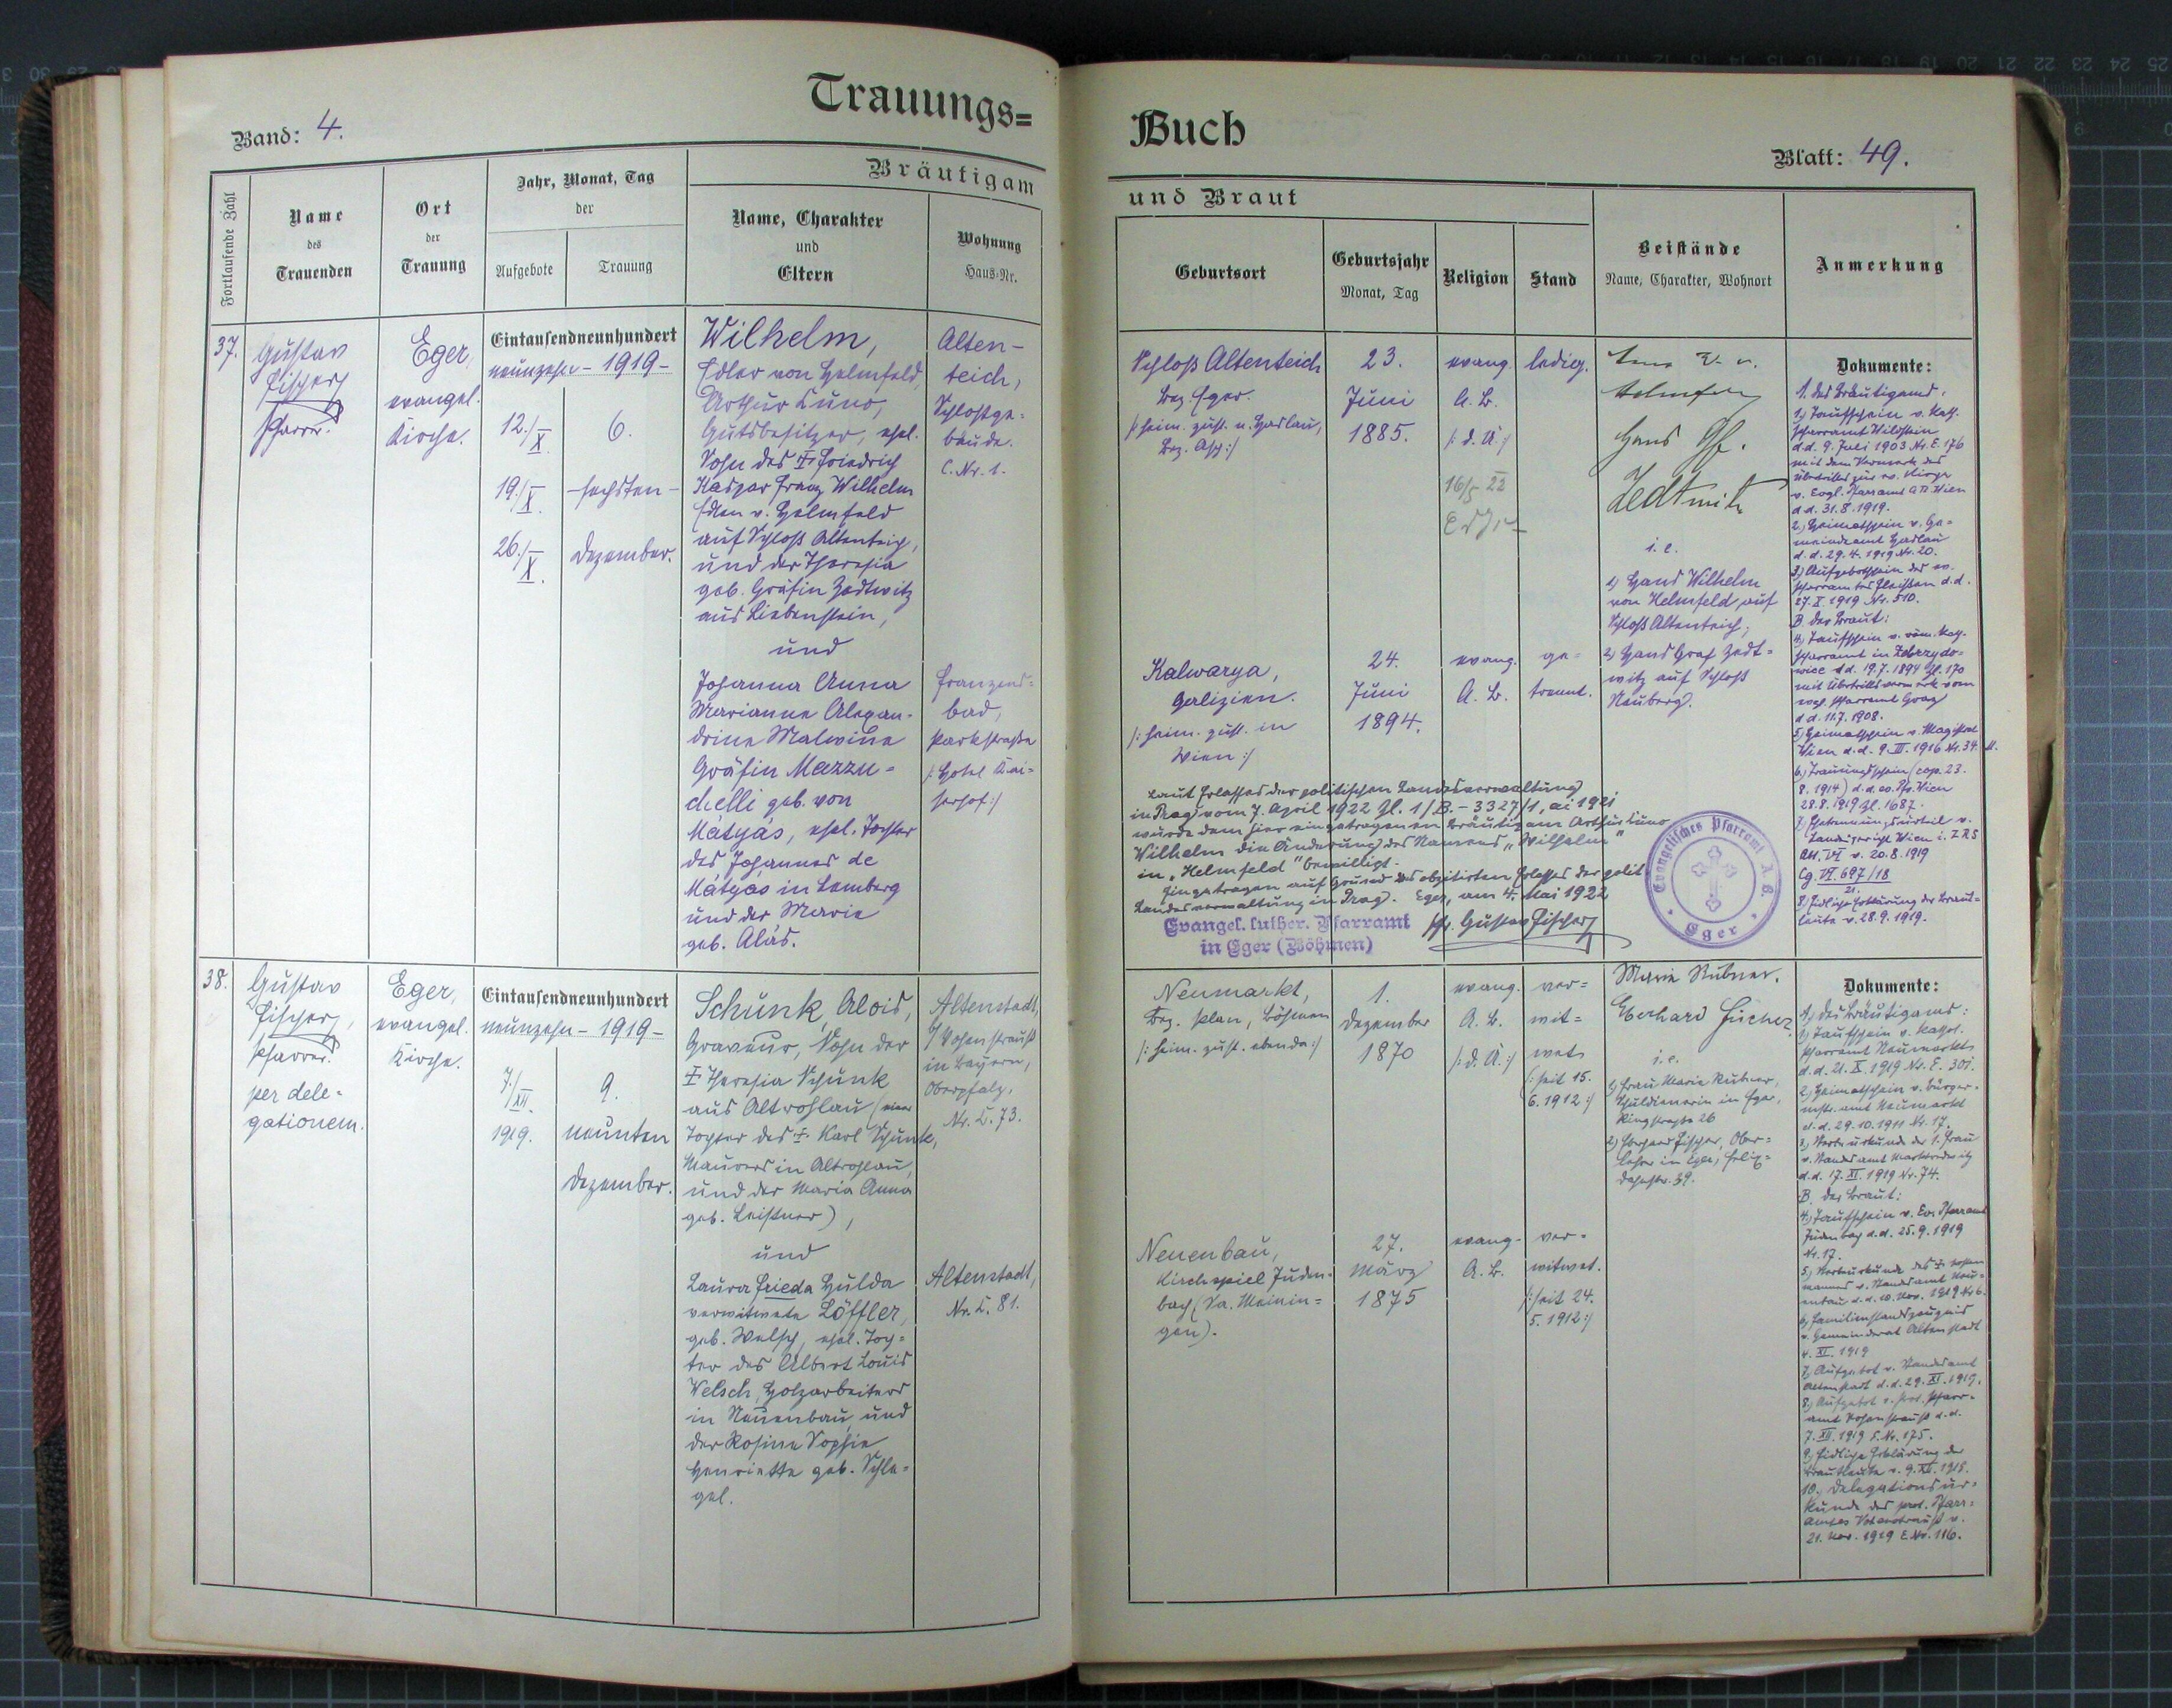 Trauungs=
Band: 4.
Fortlaufende Zahl
Name
des
Trauenden
Ort
der
Trauung
Jahr, Monat, Tag
der
Aufgebote
Trauung
Bräutigam
Name, Charakter
und
Eltern
Wohnung
Haus-Nr.
37.
Gustav
Fischer
Pfarrer.
Eger,
evangel.
Kirche.
Eintausendneunhundert
neunzehn - 1919 -
12./X.
19./X.
26./X.
6.
- sechsten -
Dezember.
Wilhelm,
Edler von Helmfeld,
Arthur Kuno,
Gutsbesitzer, ehel.
Sohn des † Friedrich
Kaspar Franz Wilhelm
Edlen v. Helmfeld
auf Schloß Altenteich,
und der Theresia
geb. Gräfin Zedtwitz
aus Liebenstein,
und
Johanna Anna
Marianne Alexan-
drine Malwine
Gräfin Mazzu-
chelli geb. von
Mátyás, ehel. Tochter
des Johannes de
Mátyás in Lemberg
und der Marie
geb. Alás.
Alten-
teich,
Schloßge-
bäude.
C. Nr. 1.
Franzens-
bad,
Parkstraße
/: Hotel Kai-
serhof :/
38.
Gustav
Fischer,
Pfarrer.
per dele-
gationem.
Eger,
evangel.
Kirche.
Eintausendneunhundert
neunzehn - 1919 -
7./XII.
1919.
9.
neunten
Dezember.
Schunk, Alois,
Graveur, Sohn der
† Theresia Schunk
aus Altrohlau (einer
Tochter des † Karl Schunk,
Maurers in Altrohlau,
und der Maria Anna
geb. Leistner),
und
Laura Frieda Hulda
verwitwete Löffler,
geb. Welsch, ehel. Toch-
ter des Albert Louis
Welsch, Holzarbeiters
in Neuenbau, und
der Rosine Sophie
Henriette geb. Schle-
gel.
Altenstadt,
b/ Vohenstrauß
in Bayern,
Oberpfalz,
Nr. C. 73.
Altenstadt,
Nr. C. 81.
Buch
Blatt: 49.
und Braut
Geburtsort
Geburtsjahr
Monat, Tag
Religion
Stand
Beistände
Name, Charakter, Wohnort
Anmerkung
Schloß Altenteich
Bez. Eger.
/: heim. zust. n. Haslau,
Bez. Asch :/
23.
Juni
1885.
evang.
A. B.
/: d. Ä. :/
16/5 22
ledig.
Hans Gf.
Zedtwitz
i. e.
1) Hans Wilhelm
von Helmfeld auf
Schloß Altenteich;
2) Hans Graf Zedt-
witz auf Schloß
Neuberg.
Kalwarya,
Galizien.
/: heim. zust. in
Wien :/
24.
Juni
1894.
evang.
A. B.
ge-
trennt.
Dokumente:
1. des Bräutigams:
1.) Taufschein v. kath.
Pfarramt Wildstein
d.d. 9. Juli 1903 Nr. E. 176
mit dem Vermerk des
Übertrittes zur ev. Kirche
v. Evgl. Pfarramt A.B. Wien
d.d. 31.8.1919.
2.) Heimatschein v. Ge-
meindeamt Haslau
d.d. 29.4.1919 Nr. 20.
3.) Aufgebotschein des ev.
Pfarramtes Fleißen d.d.
27.X.1919 Nr. 510.
B der Braut:
4.) Taufschein v. röm. kath.
Pfarramt in Zebrzydo-
wice d.d. 19.7.1894 Zl. 170
mit Übertrittsvermerk vom
evgl. Pfarramt Graz
d.d. 11.7.1908.
5.) Heimatschein v. Magistrat
Wien d.d. 9.III.1916 Nr. 34
6.) Trauungsschein (cop. 23.
8. 1914) d.d. ev. Pf. Wien
28.8.1919 Zl. 1687.
7.) Ehetrennungsurteil v.
Landgericht Wien i. Z R S
Abt. VI v. 20.8.1919
Cg. VI 697/18
21.
8.) Eidliche Erklärung der Braut-
leute v. 28.9.1919.
Laut Erlasses der politischen Landesverwaltung
in Prag vom 7. April 1922 Zl. 1/B.-3327/1, ai 1921
wurde dem hier eingetragenen Bräutigam Arthur Kuno
Wilhelm die Änderung des Namens „Wilhelm"
in „Helmfeld" bewilligt.
Eingetragen auf Grund des obzitirten Erlasses der polit
Landesverwaltung in Prag. Eger, am 4. Mai 1922
Evangel. luther. Pfarramt
in Eger (Böhmen)
Pfr. Gustav Fischer
Evangelisches Pfarramt A. B.
Eger
Neumarkt,
Bez. Plan, Böhmen
/: heim. zust. ebenda :/
1.
Dezember
1870
evang.
A. B.
/: d. Ä. :/
ver-
wit-
wet
(: seit 15.
6. 1912 :/
Marie Rubner.
Eberhard Fischer
i. e.
1) Frau Marie Rubner,
Schuldienerin in Eger,
Ringstraße 26
2) Eberhard Fischer, Ober-
lehrer in Eger, Felix-
Dahnstr. 39.
Neuenbau,
Kirchspiel Juden-
bach (Sa. Meinin-
gen).
27.
März
1875
evang.
A. B.
ver-
witwet.
/: seit 24.
5. 1912 :/
Dokumente:
A, des Bräutigams:
1.) Taufschein v. kathol.
Pfarramt Neumarkt
d.d. 21.X.1919 Nr. E. 301.
2.) Heimatschein v. Bürger-
mstr. amt Neumarkt
d.d. 29.10.1911 Nr. 17.
3.) Sterbeurkunde der 1. Frau
v. Standesamt Marktredwitz
d.d. 17.XI.1919 Nr. 74.
B der Braut:
4.) Taufschein v. Ev. Pfarramt
Judenbach d.d. 25.9.1919
Nr. 17.
5.) Sterbeurkunde des † ersten
Mannes v. Standesamt Neu-
enbau d.d. 10. Nov. 1919 Nr 6.
6.) Familienstandszeugnis
v. Gemeinderat Altenstadt
4.XI.1919
7.) Aufgebot v. Standesamt
Altenstadt d.d. 29.XI.1919.
8.) Aufgebot v. prot. Pfarr-
amt Vohenstrauß d.d.
7.XII.1919 E. Nr. 175.
9.) Eidliche Erklärung der
Brautleute v. 9.XII.1919.
10.) Delegationsur-
kunde des prot. Pfarr-
amtes Vohenstrauß v.
21. Nov. 1919 E Nr. 116.